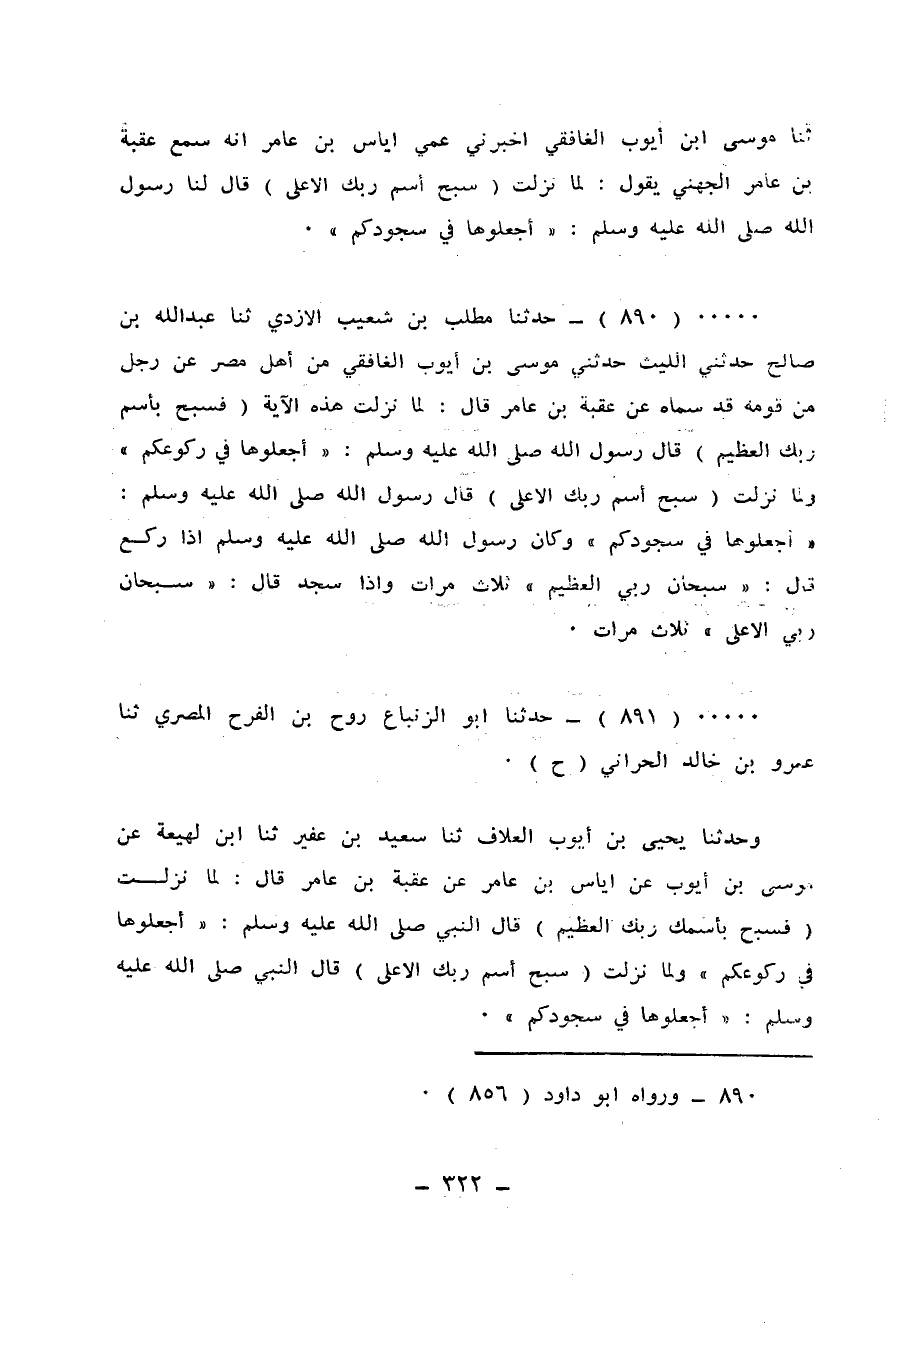 ثنا موسى ابن أيوب الغافقي اخبرني عمي اياس بن عامر انه سمع عقبة
بن عامر الجهني يقول : لما نزلت ( سبح أسم ربك الاعلى ) قال لنا رسول
الله صلى الله عليه وسلم : « أجعلوها في سجودكم » ٠
٠٠٠٠٠ ( ٨٩٠ ) ـ حدثنا مطلب بن شعيب الازدي ثنا عبدالله بن
صالح حدثني الليث حدثني موسى بن أيوب الغافقي من أهل مصر عن رجل
من قومه قد سماه عن عقبة بن عامر قال : لما نزلت هذه الآية ( فسبح بأسم
ربك العظيم ) قال رسول الله صلى الله عليه وسلم : « أجعلوها في ركوعكم »
ولما نزلت ( سبح أسم ربك الاعلى ) قال رسول الله صلى الله عليه وسلم :
« أجعلوها في سجودكم » وكان رسول الله صلى الله عليه وسلم اذا ركـع
قال : « سبحان ربي العظيم » ثلاث مرات واذا سجد قال : « سـبحان
ربي الاعلى » ثلاث مرات ٠
٠٠٠٠٠ ( ٨٩١ ) ـ حدثنا ابو الزنباع روح بن الفرح المصري ثنا
عمرو بن خالد الحراني ( ح ) ٠
وحدثنا يحيى بن أيوب العلاف ثنا سعيد بن عفير ثنا ابن لهيعة عن
موسى بن أيوب عن اياس بن عامر عن عقبة بن عامر قال : لما نزلـــت
( فسبح بأسمك ربك العظيم ) قال النبي صلى الله عليه وسلم : « أجعلوها
في ركوعكم » ولما نزلت ( سبح أسم ربك الاعلى ) قال النبي صلى الله عليه
وسلم : « أجعلوها في سجودكم » ٠
٨٩٠ ـ ورواه ابو داود ( ٨٥٦ ) ٠
ـ ٣٢٢ ـ